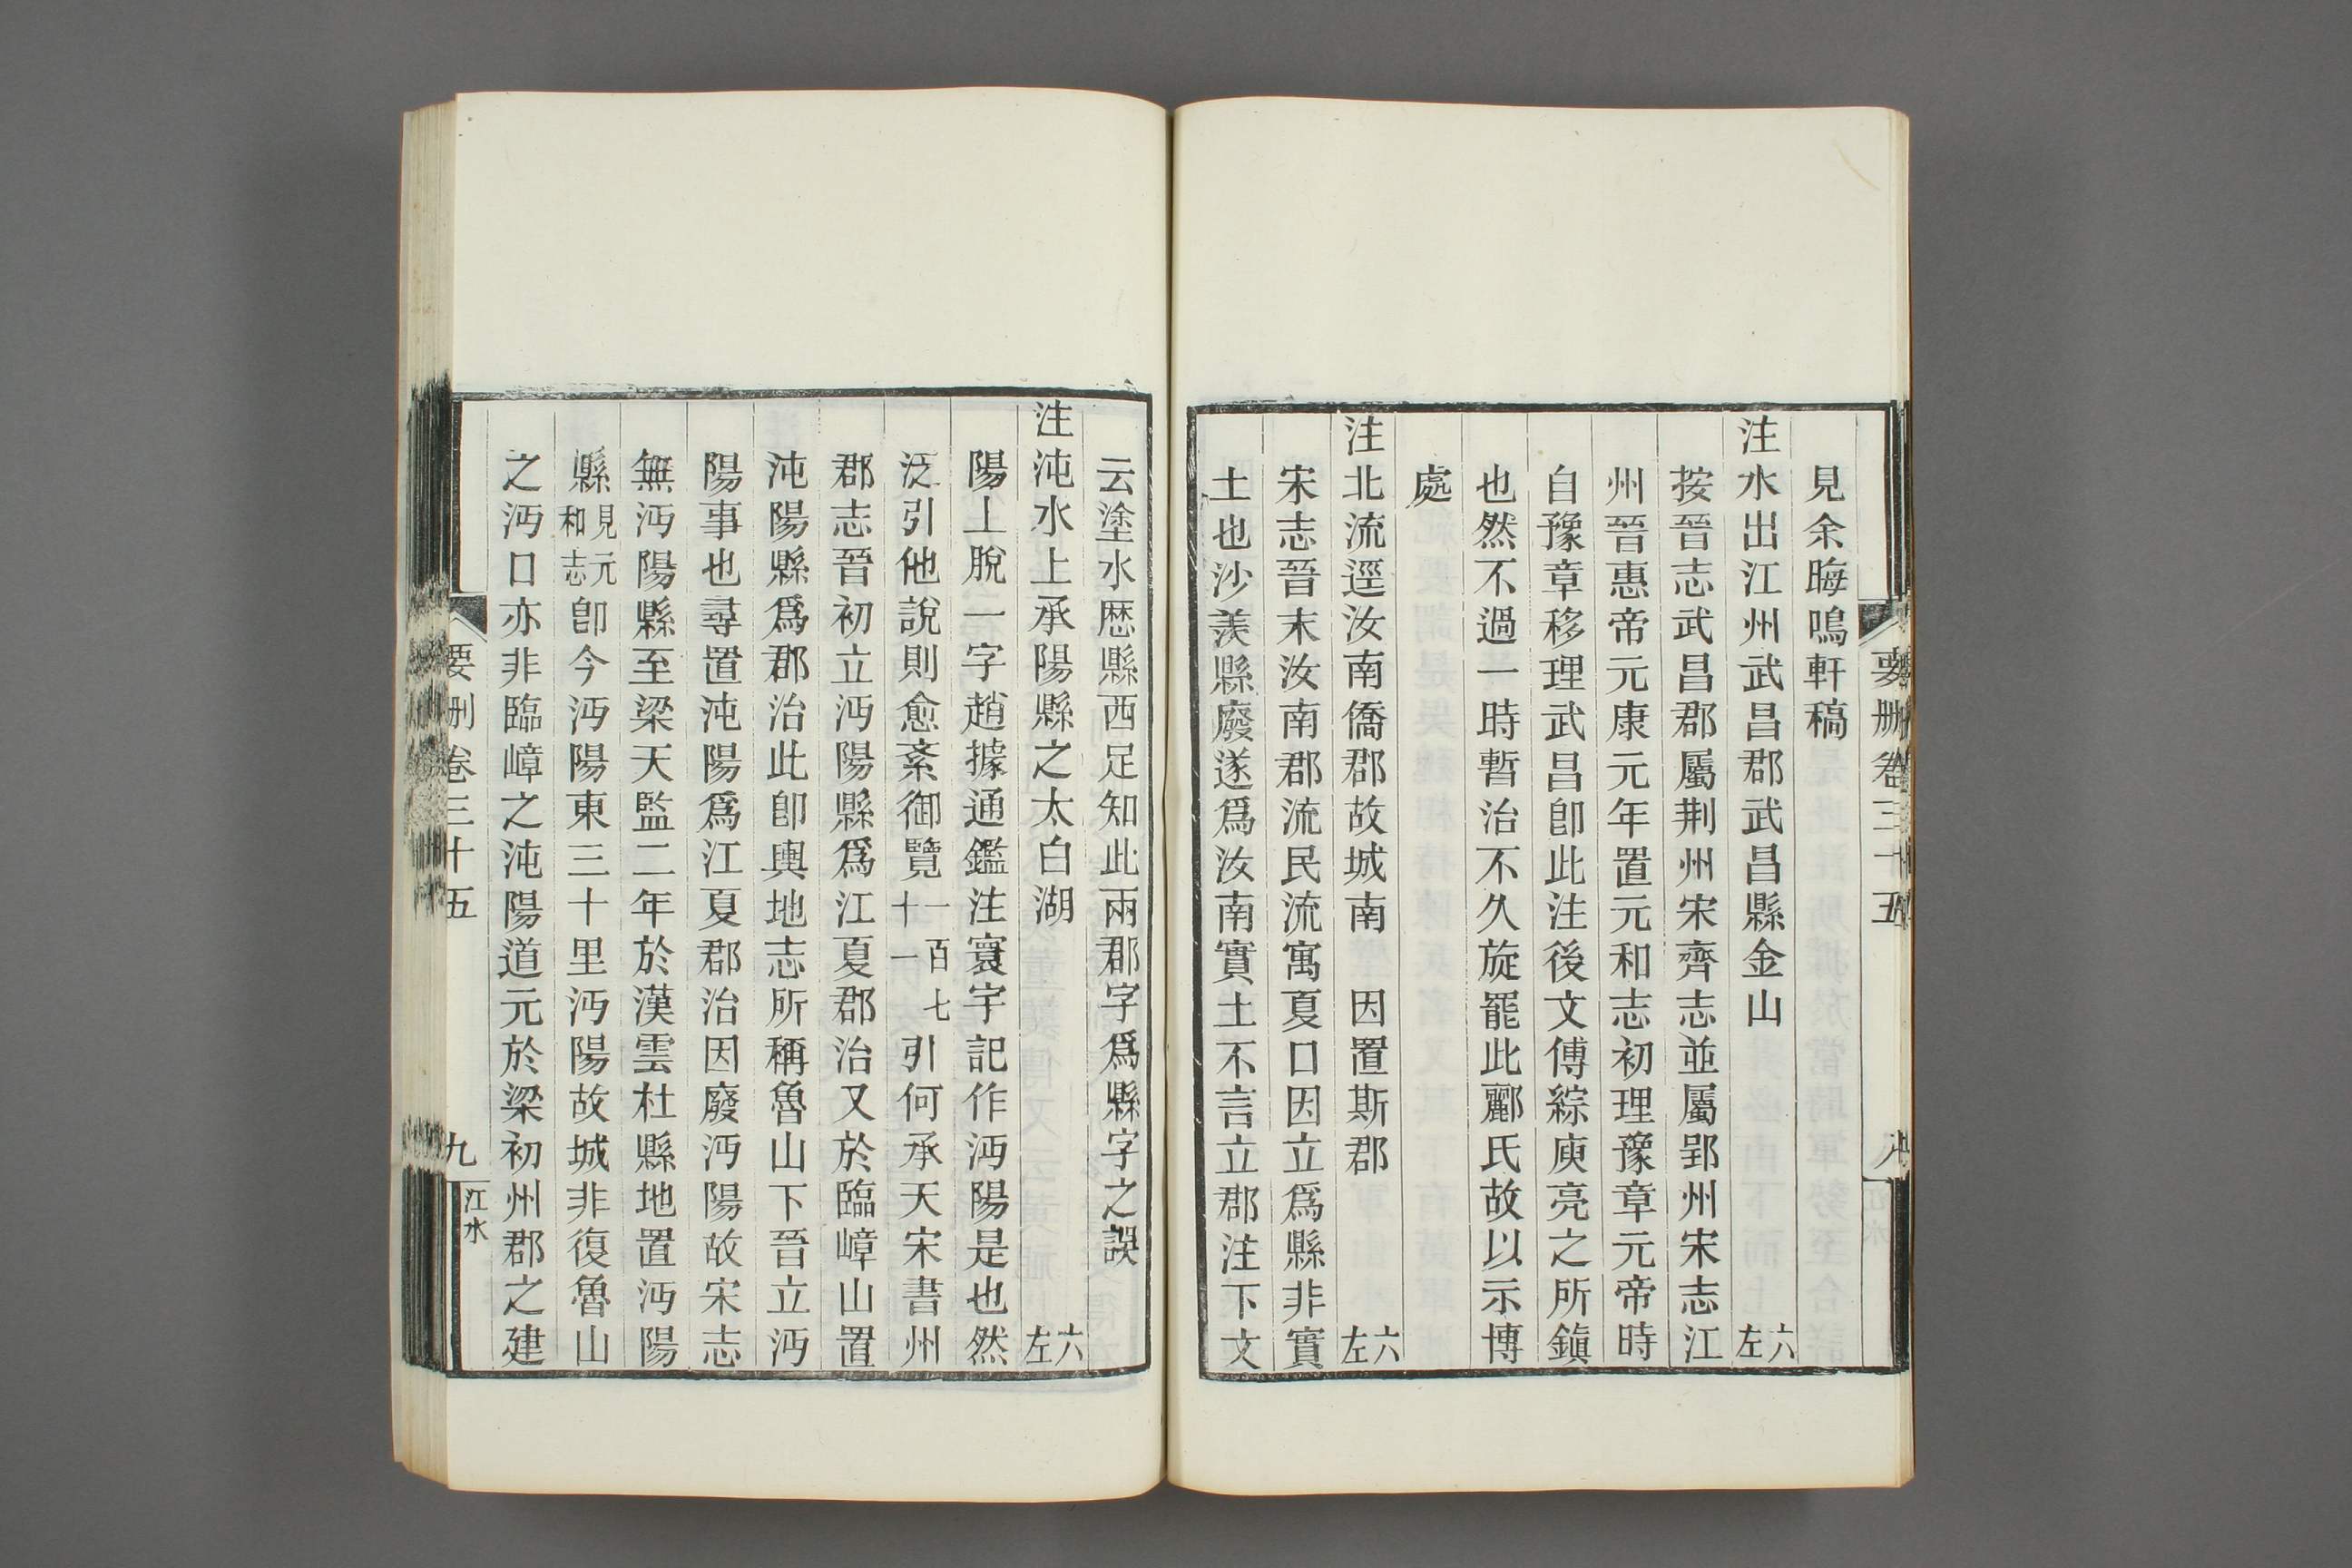 要刪卷三十五
見余晦鳴軒稿
注水出江州武昌郡武昌縣金山 六左
按晉志武昌郡屬荆州宋齊志並屬郢州宋志江
州晉惠帝元康元年置元和志初理豫章元帝時
自豫章移理武昌卽此注後文傅綜庾亮之所鎭
也然不過一時暫治不久旋罷此酈氏故以示博
處
注北流逕汝南僑郡故城南 因置斯郡 六左
宋志晉末汝南郡流民流寓夏口因立爲縣非實
土也沙羡縣廢遂爲汝南實土不言立郡注下文
云塗水歷縣西足知此兩郡字爲縣字之誤
注沌水上承陽縣之太白湖 六左
陽上脫一字趙據通鑑注寰宇記作沔陽是也然
泛引他說則愈紊御覽一百七十一引何承天宋書州
郡志晉初立沔陽縣爲江夏郡治又於臨嶂山置
沌陽縣爲郡治此卽輿地志所稱魯山下晉立沔
陽事也尋置沌陽爲江夏郡治因廢沔陽故宋志
無沔陽縣至梁天監二年於漢雲杜縣地置沔陽
縣見元和志卽今沔陽東三十里沔陽故城非復魯山
之沔口亦非臨嶂之沌陽道元於梁初州郡之建
要刪卷三十五 九 江水